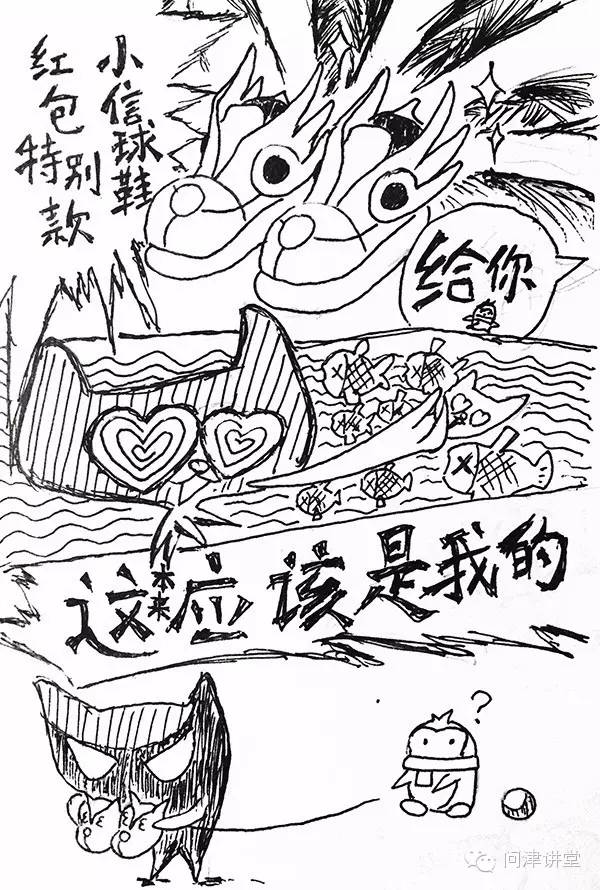 小信球鞋
红包特别款
给你
这本来应该是我的
?
问津讲堂